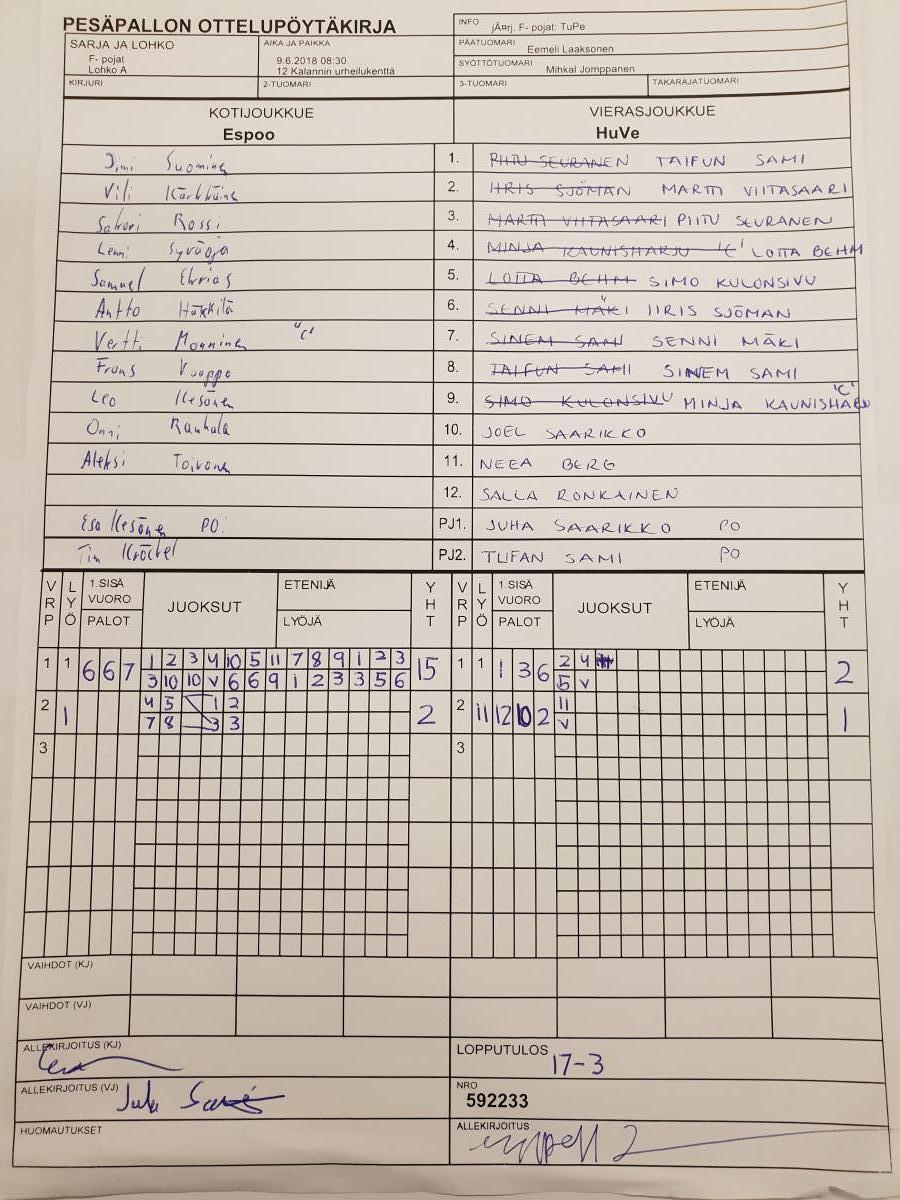 PESÄPALLON OTTELUPÖYTÄKIRJA
INFO jÃ¤rj. F- pojat: TuPe
SARJA JA LOHKO
F- pojat
Lohko A
AIKA JA PAIKKA
9.6.2018 08:30
12 Kalannin urheilukenttä
PÄÄTUOMARI Eemeli Laaksonen
SYÖTTÖTUOMARI Mihkal Jomppanen
KIRJURI 2-TUOMARI 3-TUOMARI TAKARAJATUOMARI
KOTIJOUKKUE VIERASJOUKKUE
Espoo HuVe
Jimi Suominen 1. PIITU SEURANEN TAIFUN SAMI
Vili Kärkkäine 2. IIRIS SJÖMAN MARTTI VIITASAARI
Sakari Rossi 3. MARTTI VIITASAARI PIITU SEURANEN
Lenni Syväoja 4. MINJA KAUNISHARJU 'C' LOTTA BEHM
Samuel 5. LOTTA BEHM SIMO KULONSIVU
Antto Häkkilä 6. SENNI MÄKI IIRIS SJÖMAN
Vertti Monninen "C" 7. SINEM SAMI SENNI MÄKI
Frans Vuoppo 8. TAIFUN SAMI SINEM SAMI
Leo Kesänen 9. SIMO KULONSIVU MINJA KAUNISHARJU 'C'
Onni Rauhala 10. JOEL SAARIKKO
Aleksi Toivonen 11. NEEA BERG
12. SALLA RONKAINEN
Esa Kesänen PO. PJ1. JUHA SAARIKKO PO
Tim PJ2. TUFAN SAMI PO
VRP LYÖ 1.SISÄ VUORO PALOT JUOKSUT ETENIJÄ LYÖJÄ YHT VRP LYÖ 1.SISÄ VUORO PALOT JUOKSUT ETENIJÄ LYÖJÄ YHT
1 1 6 6 7 1 2 3 4 10 5 11 7 8 9 1 2 3 15 1 1 1 3 6 2 4 2
3 10 10 V 6 6 9 1 2 3 3 5 6 5 V
2 1 4 5 1 2 2 2 11 12 10 2 11 1
7 8 3 3 V
3 3
VAIHDOT (KJ)
VAIHDOT (VJ)
ALLEKIRJOITUS (KJ) LOPPUTULOS 17-3
ALLEKIRJOITUS (VJ) Juha NRO
592233
HUOMAUTUKSET ALLEKIRJOITUS